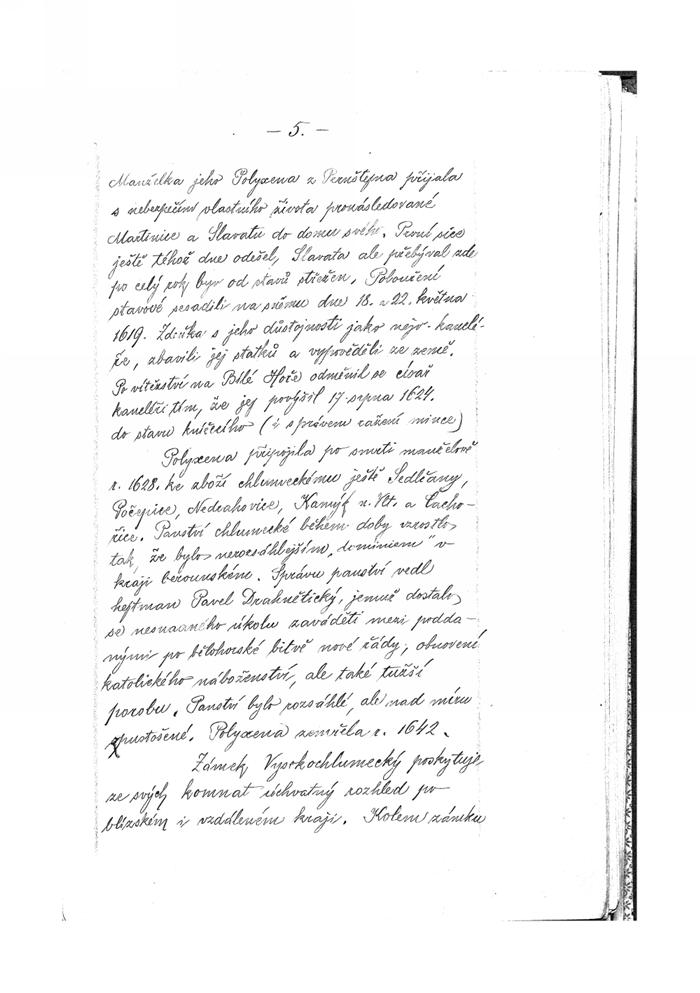 — 5. —
Manželka jeho Polyxena z Pernštejna přijala
s nebezpečím vlastního života pronásledované
Martinice a Slavatu do domu svého. První sice
ještě téhož dne odešel, Slavata ale přebýval zde
po celý rok byv od stavů střežen. Pobouření
stavové sesadili na sněmu dne 18. a 22. května
1619. Zdeňka s jeho důstojnosti jako nejv. kanclé-
ře, zbavili jej statků a vypověděli ze země.
Po vítězství na Bílé Hoře odměnil se císař
kancléři tím, že jej povýšil 17. srpna 1624.
do stavu knížecího (i s právem ražení mince)
Polyxena připojila po smrti manželově
r. 1628. ke zboží chlumeckému ještě Sedlčany,
Počepice, Nedrahovice, Kamýk n. Vlt. a Cacho-
řice. Panství chlumecké během doby vzrostlo
tak, že bylo nerozsáhlejším „dominiem" v
kraji berounském. Správu panství vedl
hejtman Pavel Drahnětický, jemuž dostalo
se nesnadného úkolu zaváděti mezi podda-
nými po bělohorské bitvě nové řády, obnovení
katolického náboženství, ale také tužší
porobu. Panství bylo rozsáhlé, ale nad míru
zpustošené. Polyxena zemřela r. 1642.
Zámek Vysokochlumecký poskytuje
ze svých komnat úchvatný rozhled po
blízkém i vzdáleném kraji. Kolem zámku